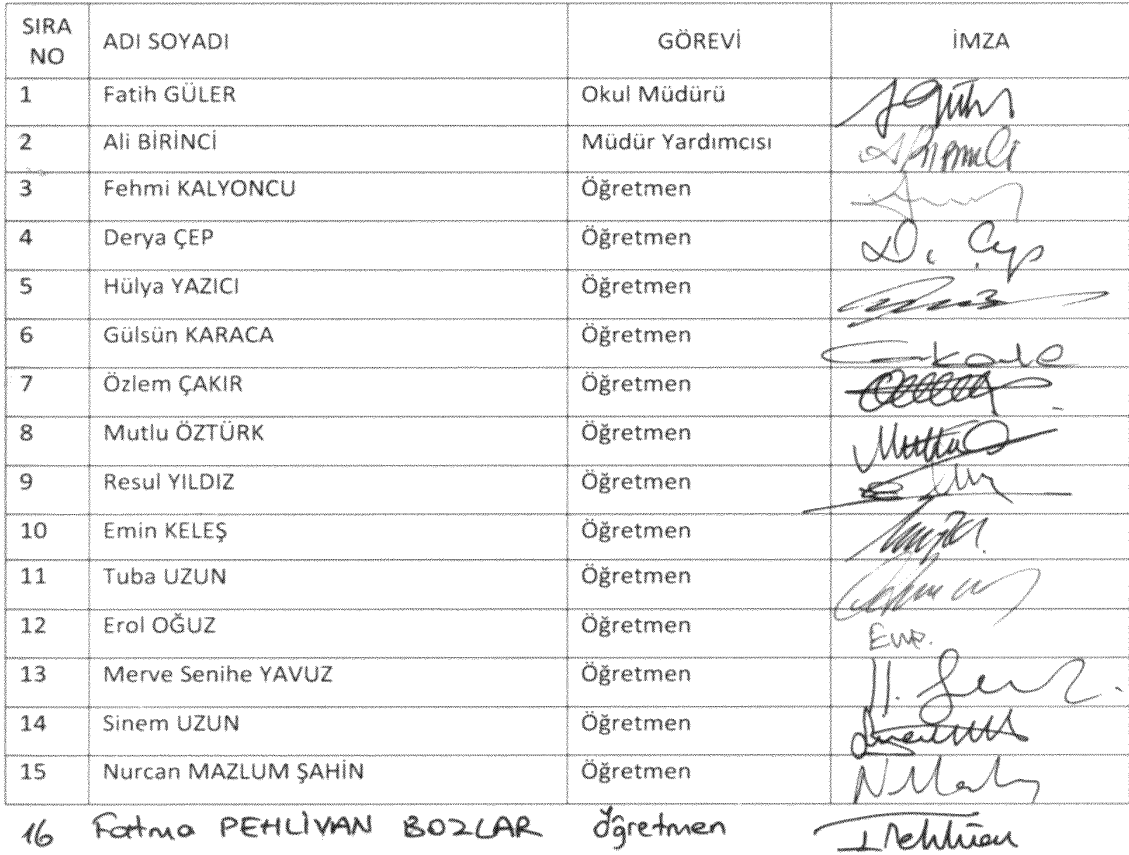 SIRA NO ADI SOYADI GÖREVİ İMZA
1 Fatih GÜLER Okul Müdürü
2 Ali BİRİNCİ Müdür Yardımcısı
3 Fehmi KALYONCU Öğretmen
4 Derya ÇEP Öğretmen D. Çep
5 Hülya YAZICI Öğretmen
6 Gülsün KARACA Öğretmen
7 Özlem ÇAKIR Öğretmen
8 Mutlu ÖZTÜRK Öğretmen Mutlu
9 Resul YILDIZ Öğretmen
10 Emin KELEŞ Öğretmen
11 Tuba UZUN Öğretmen
12 Erol OĞUZ Öğretmen
13 Merve Senihe YAVUZ Öğretmen
14 Sinem UZUN Öğretmen
15 Nurcan MAZLUM ŞAHİN Öğretmen
16 Fatma PEHLİVAN BOZLAR Öğretmen